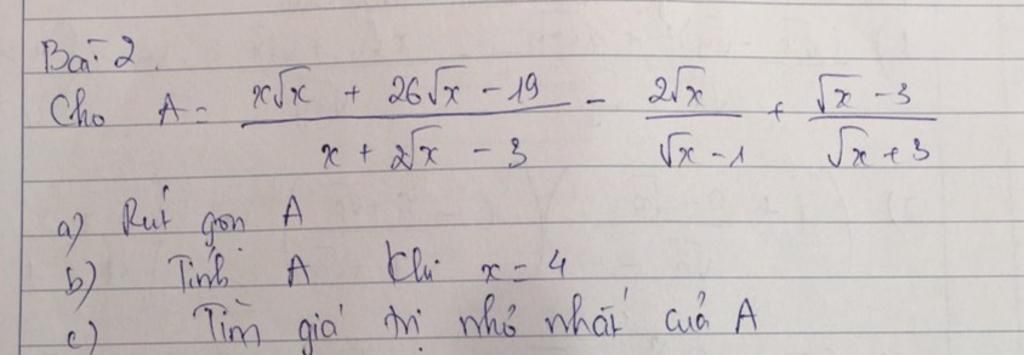 Bài 2.
Cho A = \frac{x\sqrt{x} + 26\sqrt{x} - 19}{x + 2\sqrt{x} - 3} - \frac{2\sqrt{x}}{\sqrt{x} - 1} + \frac{\sqrt{x} - 3}{\sqrt{x} + 3}
a) Rút gọn A
b) Tính A khi x = 4
c) Tìm giá trị nhỏ nhất của A